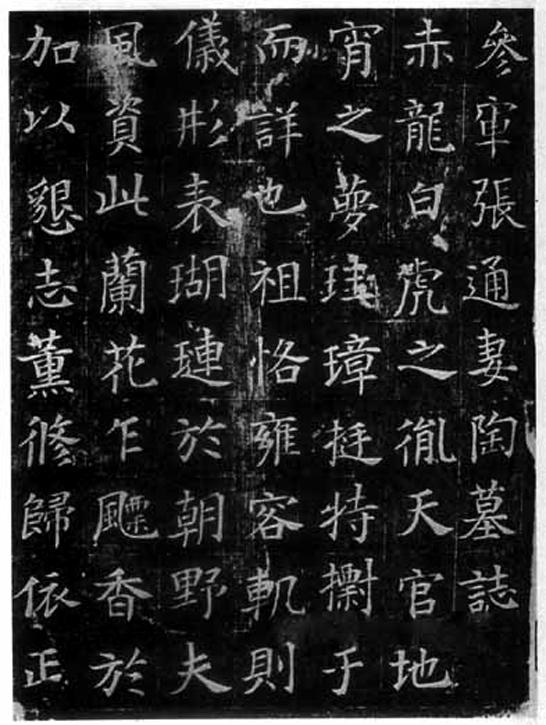 參軍張通妻陶墓誌
赤龍白虎之胤天官地
宵之夢珪璋挺特于
而詳也祖恪雍容軌則
儀形表瑚璉於朝野夫
風資此蘭花乍飄香於
加以懇志薰修歸依正